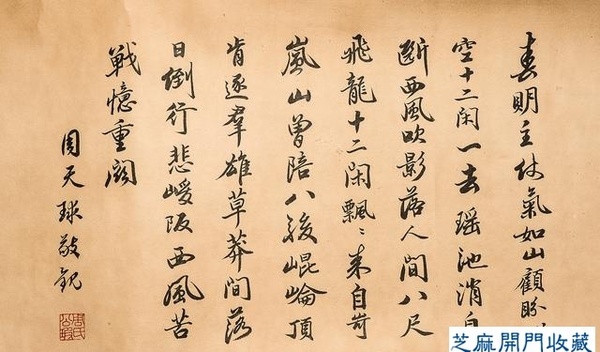 春明主仗氣如山顧盼
空十二闲一去瑶池消息
断西風吹影落人間八尺
飛龍十二闲飄〻来自苛
嵐山曾陪八駿崐崘頂
肯逐羣雄草莽間落
日倒行悲峻阪西風苦
戦憶重闕
周天球敬观
周氏公瑕
芝麻開門收藏